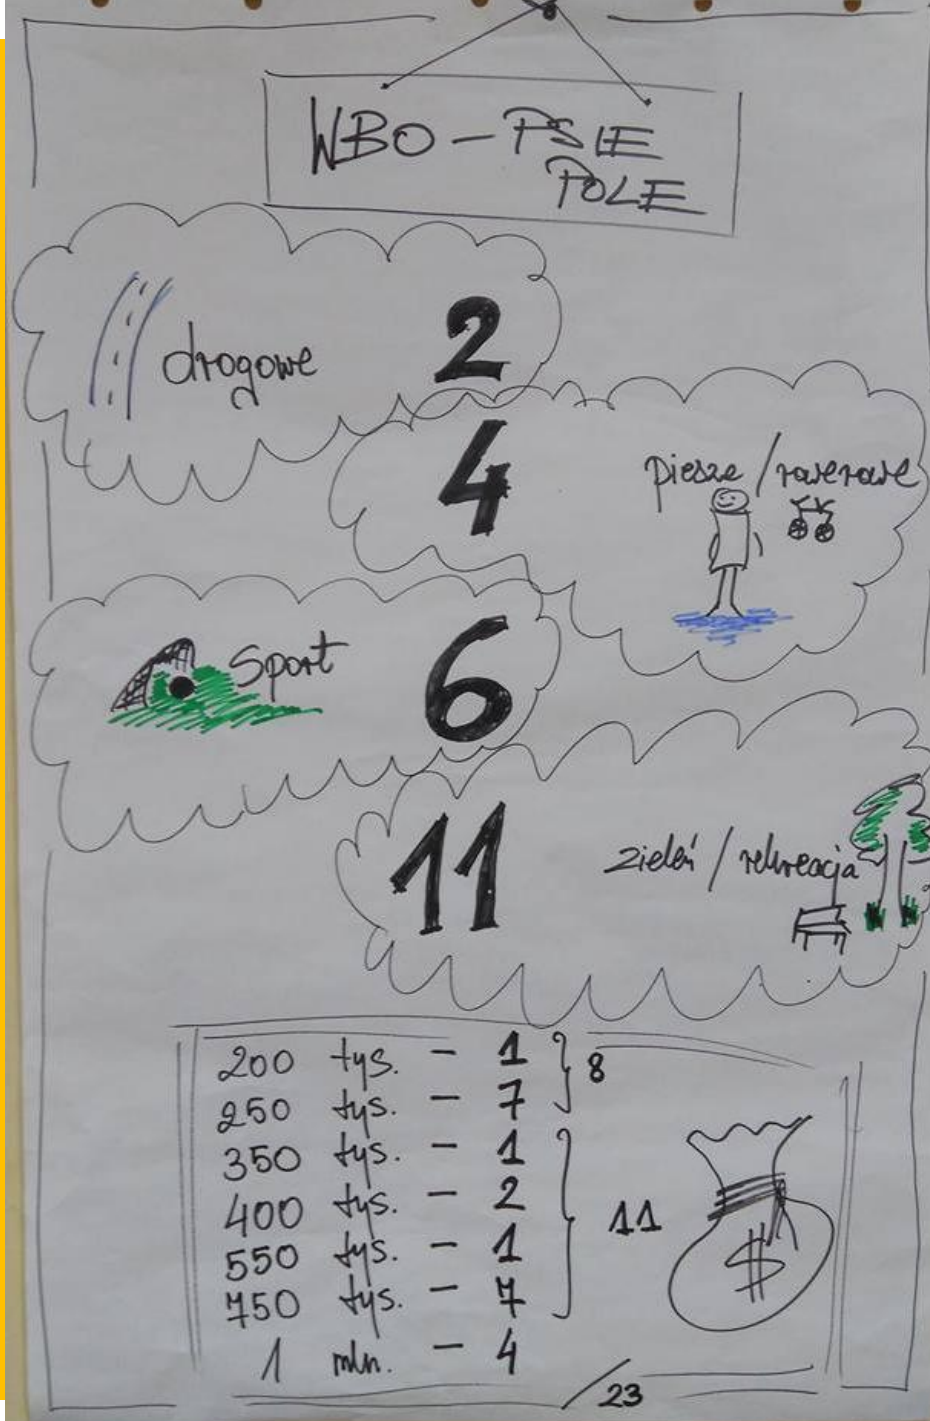 WBO - PSIE
POLE
drogowe 2
4 piesze / rowerowe
Sport 6
11 zieleń / rekreacja
200 tys. - 1
250 tys. - 7
8
350 tys. - 1
400 tys. - 2
550 tys. - 1
750 tys. - 7
11
1 mln. - 4
/23
$